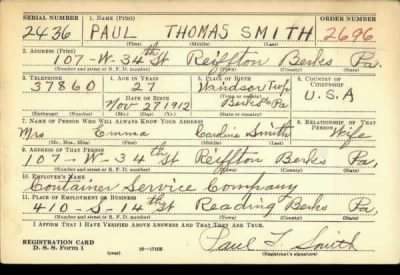 SERIAL NUMBER 1. NAME (Print) ORDER NUMBER
2436 PAUL THOMAS SMITH 2696
(First) (Middle) (Last)
2. ADDRESS (Print)
107-W-34th St Reiffton Berks Pa.
(Number and street or R. F. D. number) (Town) (County) (State)
3. TELEPHONE 4. AGE IN YEARS 5. PLACE OF BIRTH 6. COUNTRY OF CITIZENSHIP
37860 27 Windsor Twp
DATE OF BIRTH (Town or county)
Nov 27 1912 Berks Pa U.S.A
(Exchange) (Number) (Mo.) (Day) (Yr.) (State or country)
7. NAME OF PERSON WHO WILL ALWAYS KNOW YOUR ADDRESS 8. RELATIONSHIP OF THAT PERSON
Mrs Emma Caroline Smith Wife
(Mr., Mrs., Miss) (First) (Middle) (Last)
9. ADDRESS OF THAT PERSON
107-W-34th St Reiffton Berks Pa,
(Number and street or R. F. D. number) (Town) (County) (State)
10. EMPLOYER'S NAME
Container Service Company
11. PLACE OF EMPLOYMENT OR BUSINESS
410-S-14th St Reading Berks Pa,
(Number and street or R. F. D. number) (Town) (County) (State)
I AFFIRM THAT I HAVE VERIFIED ABOVE ANSWERS AND THAT THEY ARE TRUE.
REGISTRATION CARD
D. S. S. Form 1 16-17105 Paul T. Smith
(over) (Registrant's signature)